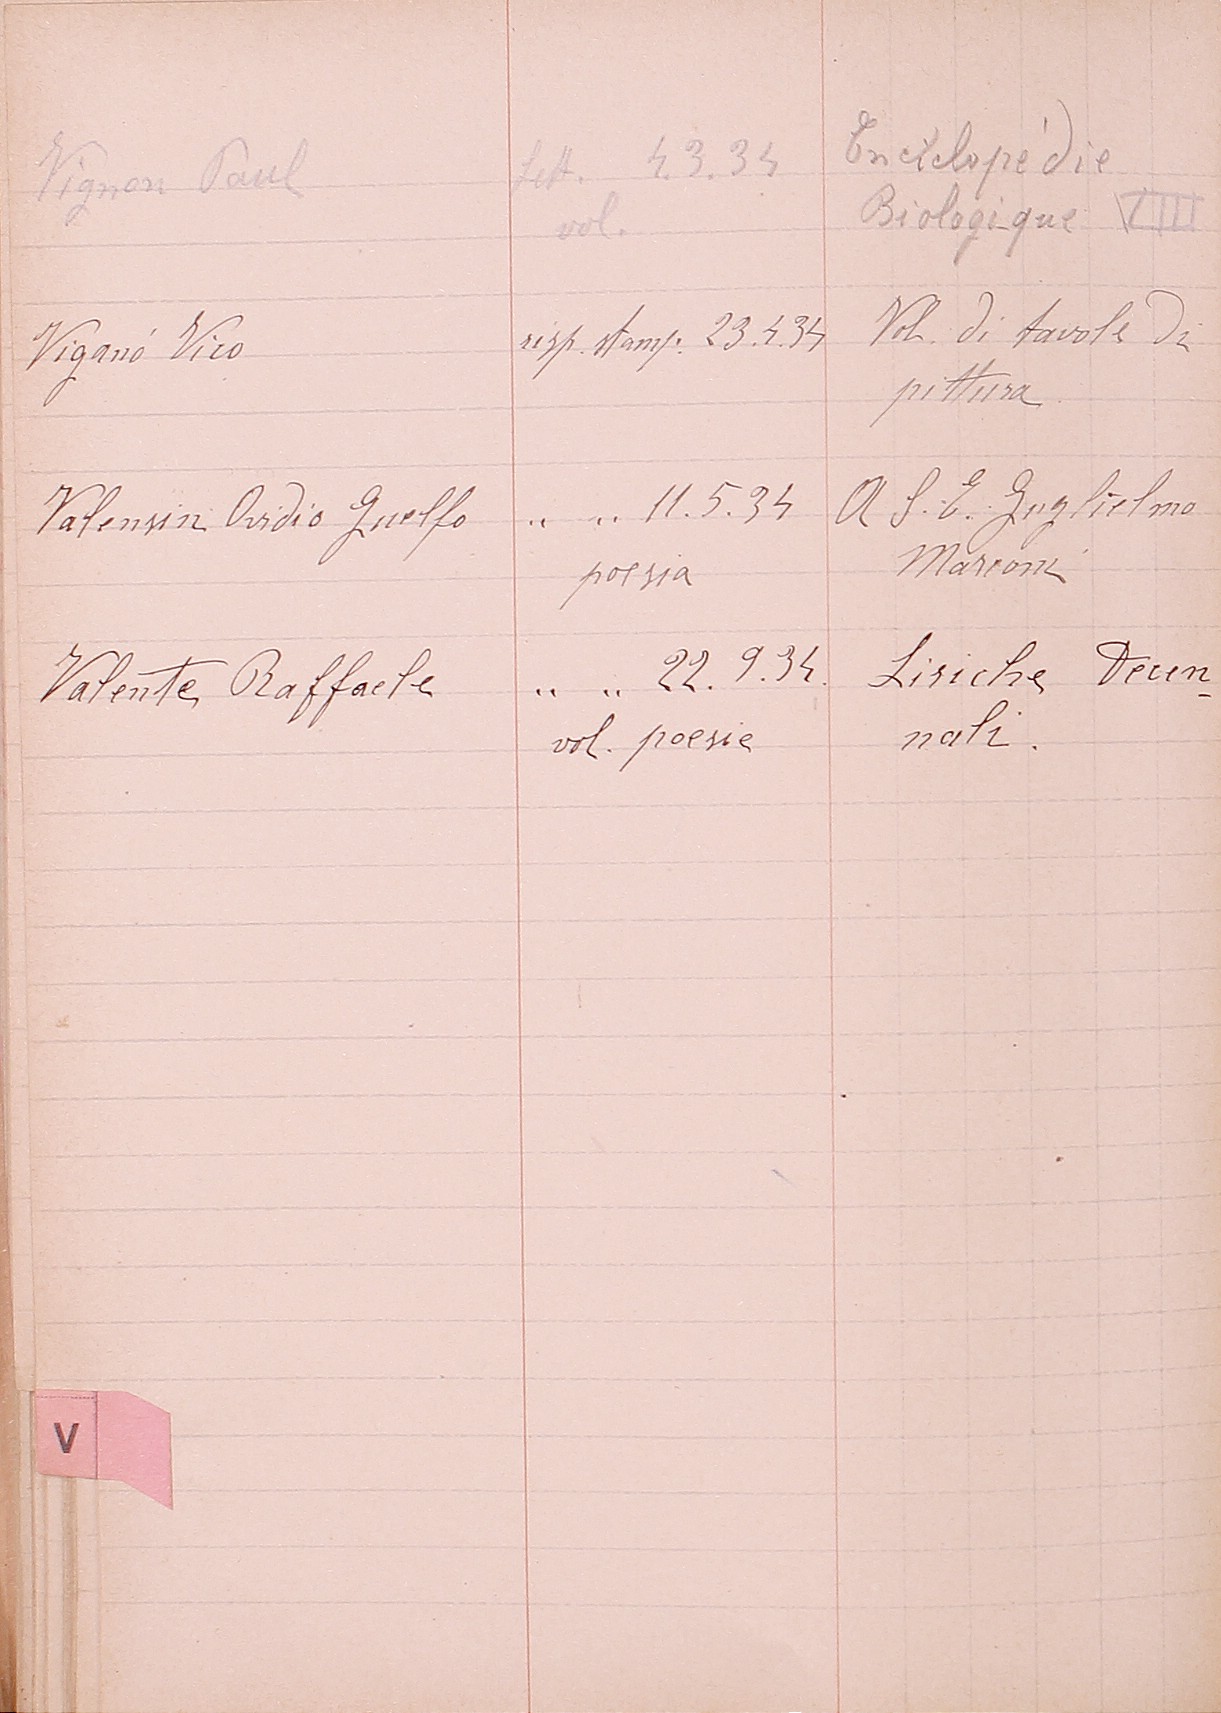 Vignon Paul lett. 4.3.34 Encyclopédie
vol. Biologique VIII
Viganó Vico risp. stamp. 23.4.34 Vol. di tavole di
pittura
Valensin Ovidio Guelfo " " 11.5.34 A S. E. Guglielmo
poesia Marconi
Valente Raffaele " " 22.9.34. Liriche Decen-
vol. poesie nali.
V